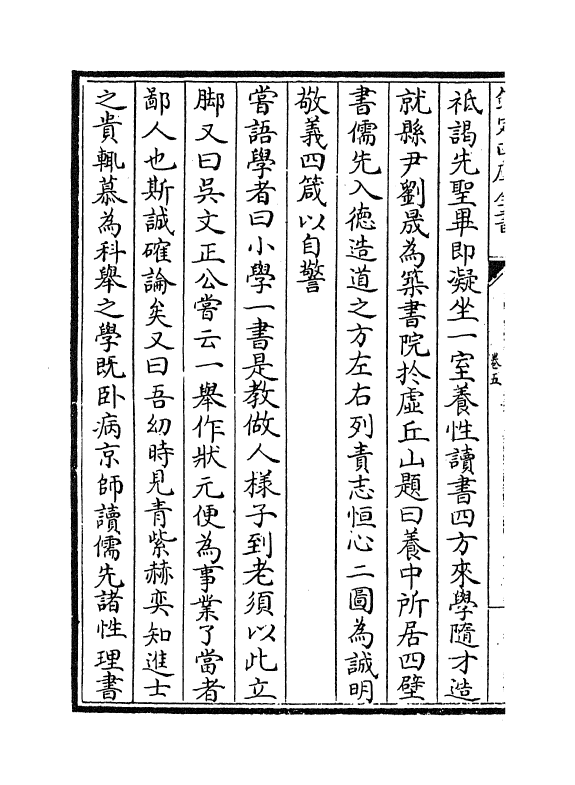 欽定四庫全書
卷五
祗謁先聖畢即凝坐一室養性讀書四方來學隨才造
就縣尹劉晟為築書院扵虛丘山題曰養中所居四壁
書儒先入徳造道之方左右列責志恒心二圖為誠明
敬義四箴以自警
嘗語學者曰小學一書是教做人様子到老須以此立
脚又曰吳文正公嘗云一舉作狀元便為事業了當者
鄙人也斯誠確論矣又曰吾幼時見青紫赫奕知進士
之貴輒慕為科舉之學既卧病京師讀儒先諸性理書